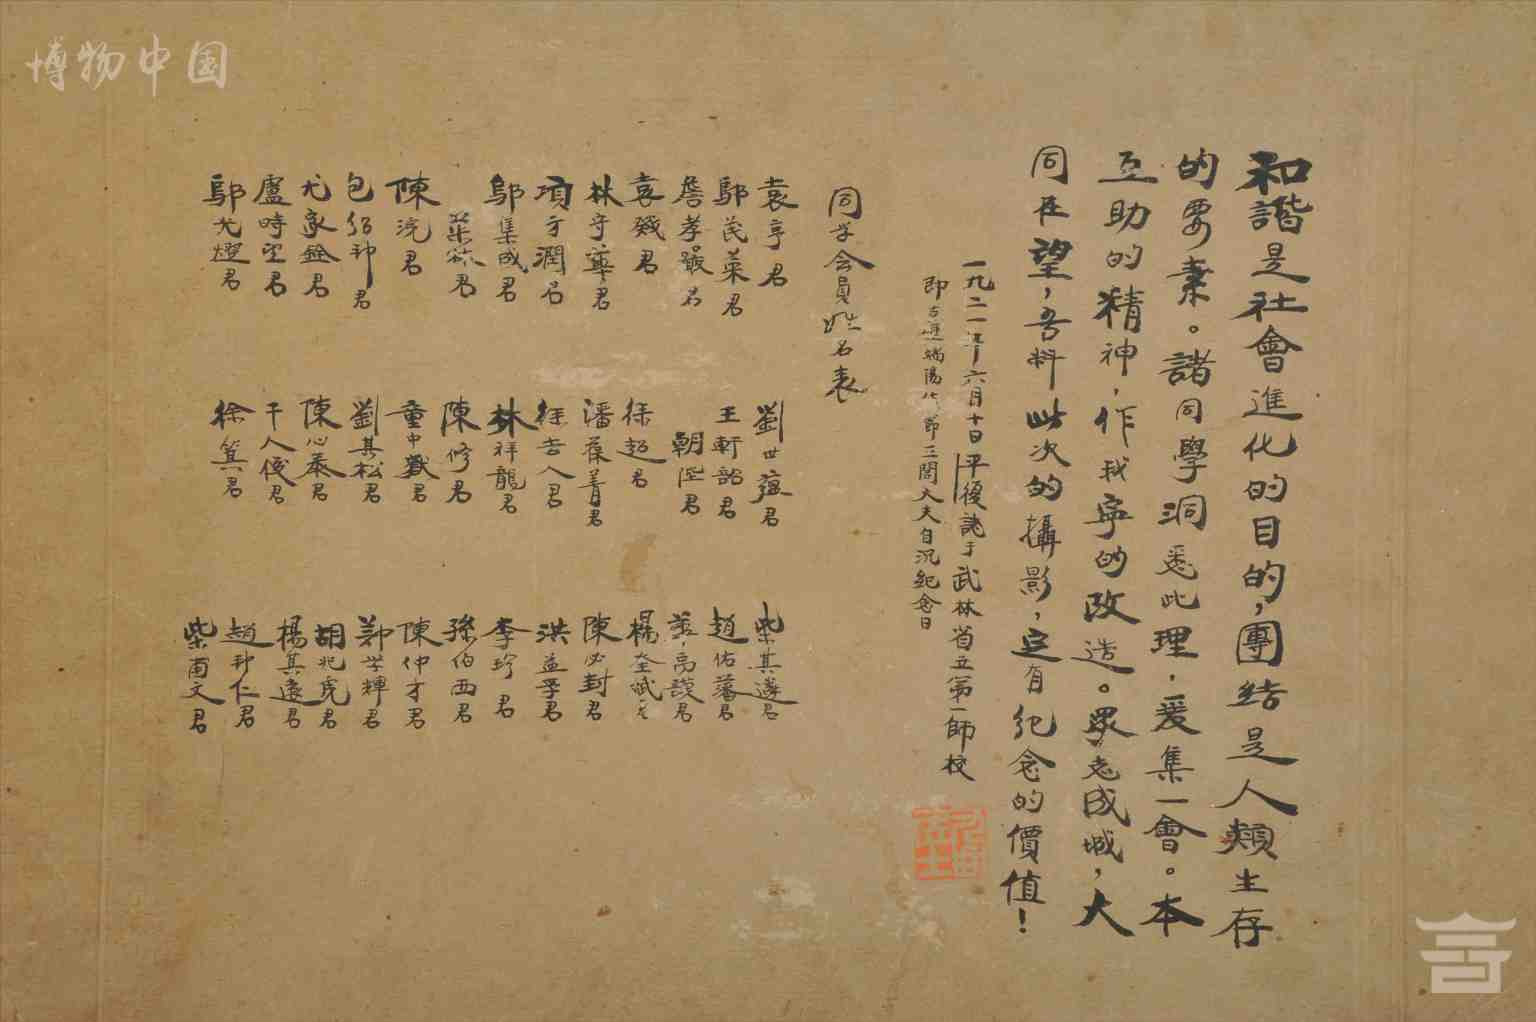 和諧是社會進化的目的，團結是人類生存
的要素。諸同學洞悉此理，爰集一會。本
互助的精神，作我寧的改造。眾志成城，大
同在望，吾料此次的攝影，定有紀念的價值！
一九二一年六月十日平復誌于武林省立第一師校
即古歷端陽佳節三閭大夫自沉紀念日
同学会員姓名表
袁亨君
鄔民萊君
詹孝君
袁君
林守華君
項方潤君
鄔集成君
葉君
陳浣君
包紹珅君
尤家銓君
盧時望君
鄔光燈君
劉世蘊君
王軒韶君
朝陞君
徐超君
潘葆菁君
徐吉人君
林祥龍君
陳修君
童中嶽君
劉其松君
陳心泰君
干人俊君
徐箕君
柴其遂君
趙佑藩君
高謨君
楊奎斌君
陳必封君
洪益孚君
李珍君
孫伯西君
陳仲才君
鄭学輝君
胡兆虎君
楊其遠君
趙珅仁君
柴甫文君
博物中国